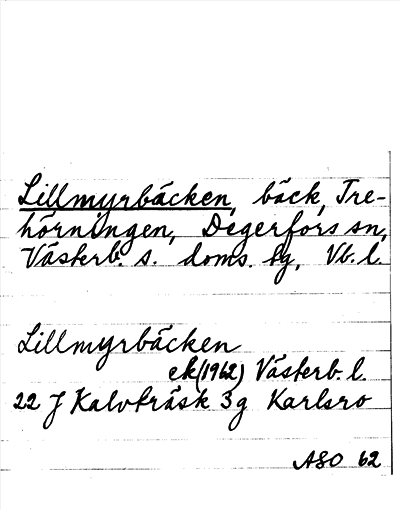 Lillmyrbäcken, bäck, Tre-
hörningen, Degerfors sn,
Västerb. s. doms. hg, Vb. l.
Lillmyrbäcken
ek (1962) Västerb. l.
22 J Kalvträsk 3g Karlsro
ASO 62